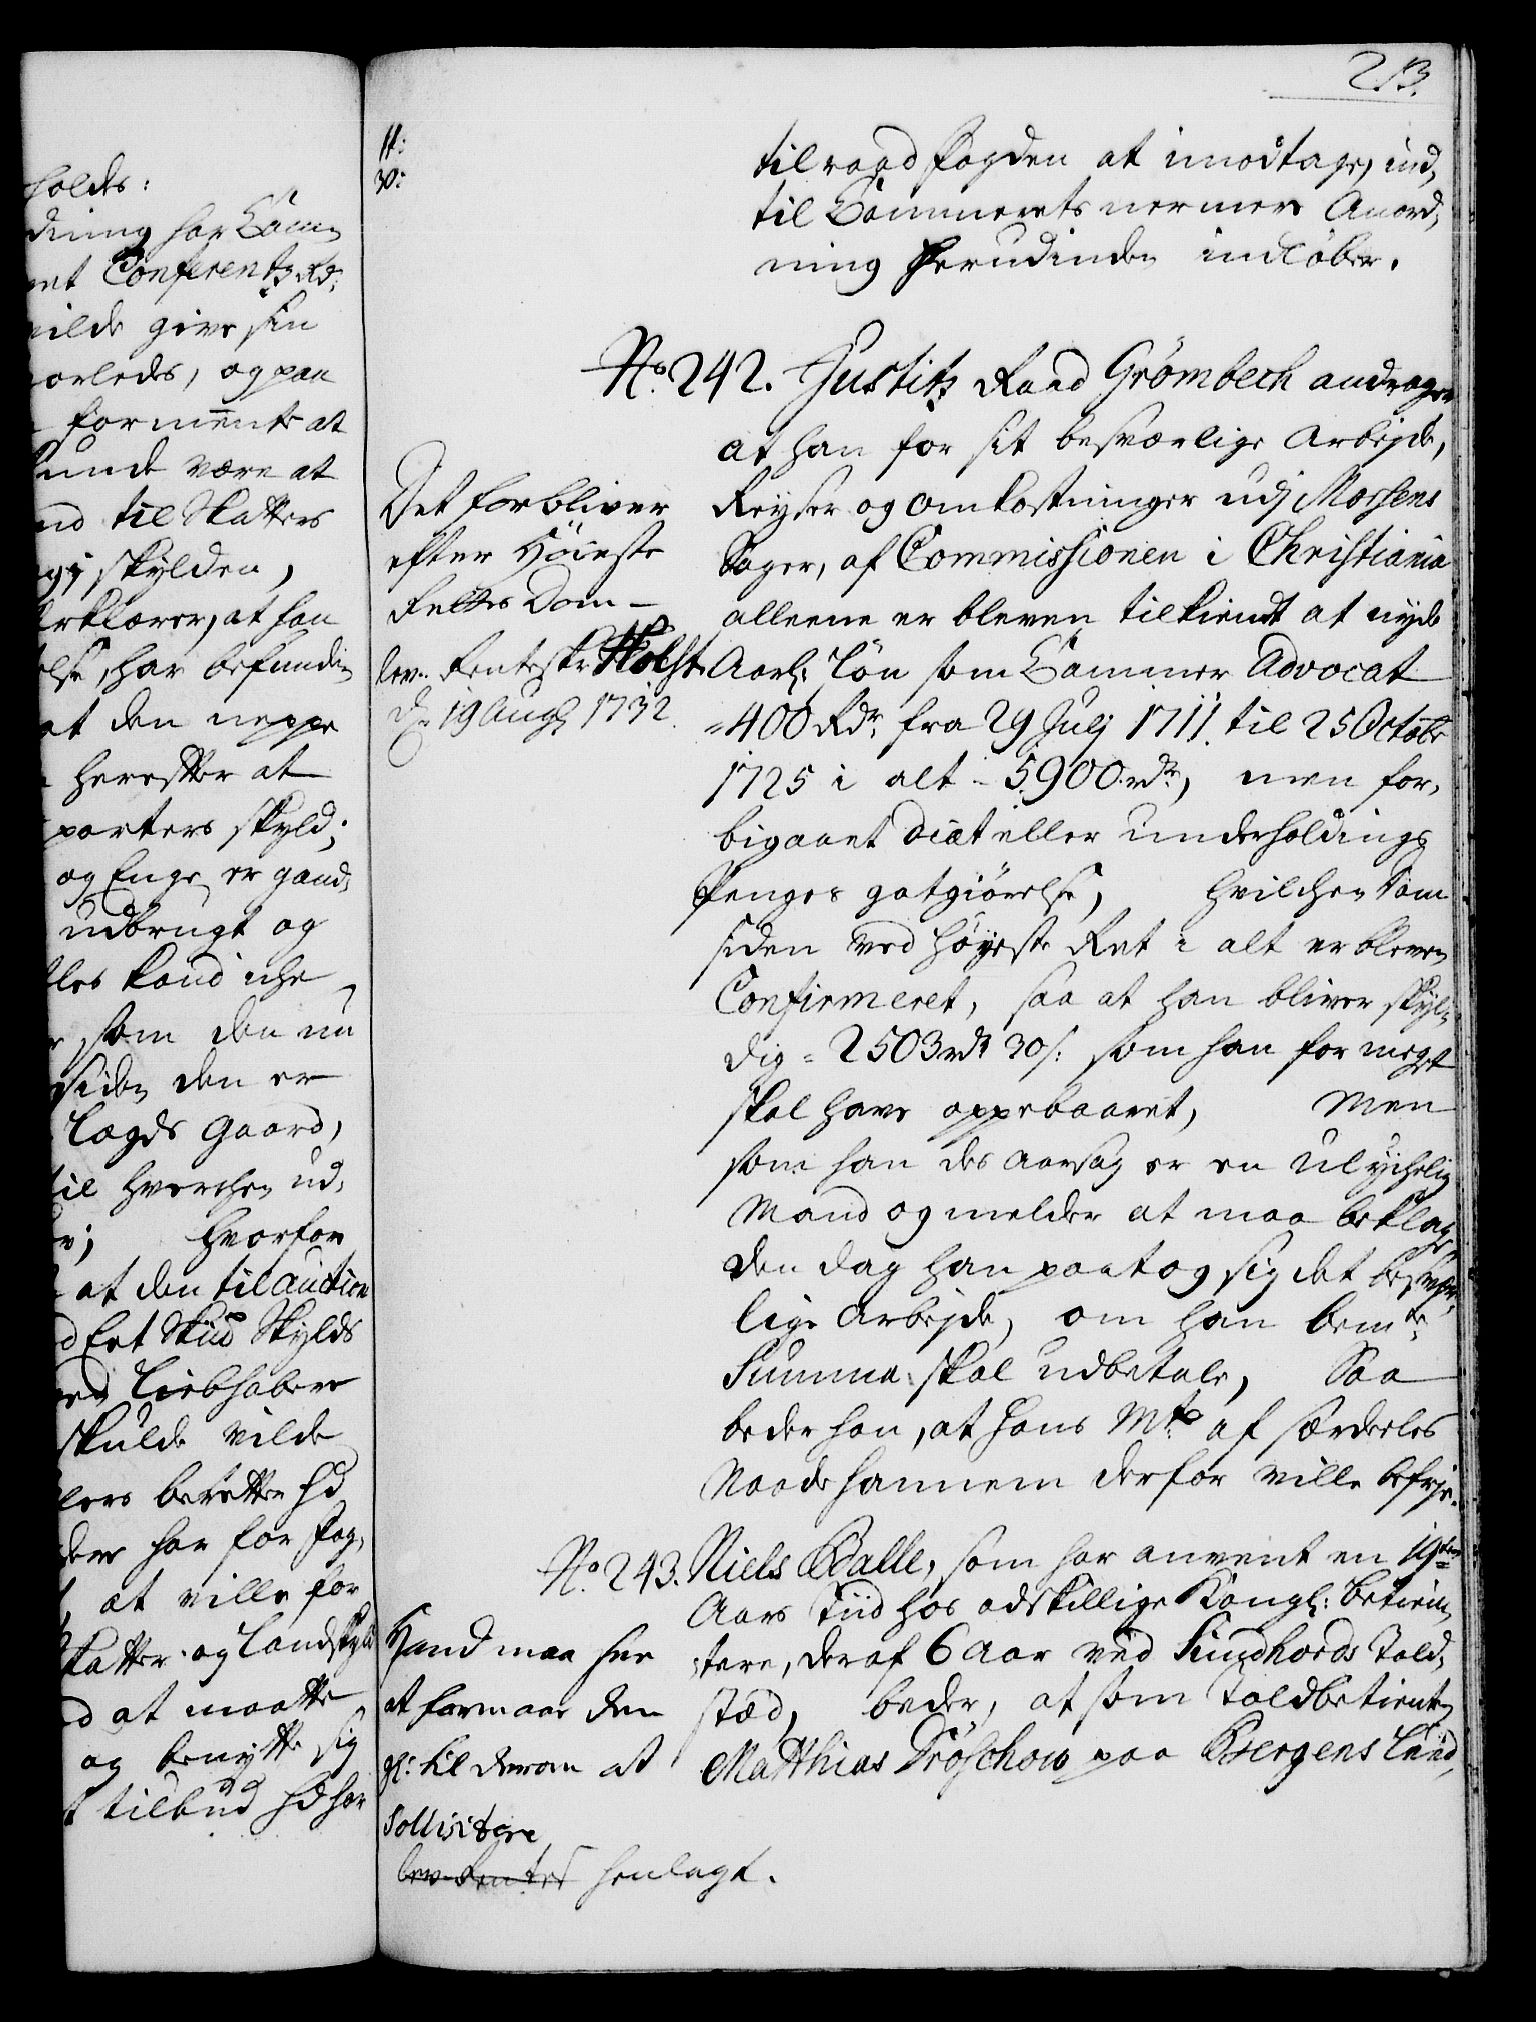 213.
holdes:
dning har Cam-
ret Conferentz Rd:
vilde give sin
orledes, og paa
formeente at
kunde være at
nd til Skatters
skylden,
erklærer, at han
else, har befunden
at den neppe
herefter at
parters skyld;
og Enge er gand-
udbrugt og
les kand iche
som den nu
siden den er
Laugds Gaard,
til hverchen ud-
Hvorfor
at den til auction
d Eet Skud Skylds
Liebhabere
skulde vilde
lers beretter hd
dere har for Fog-
at ville for
Skatter og Landskyld
d at maatte
og benytte sig
tilbud hd har
til raad fogden at imodtage, ind-
til Cammerets nermere Anord-
ning herudinden indløber.
No. 242. Justitz Raad Grømbech andrager
at han for sit besværlige Arbejde,
Reyser og omkostninger udj Mossens
Sager, af Commissionen i Christiania
alleene er bleven tilkiendt at nyde
Aarl: Løn som Cammer Advocat
400 Rdr. fra 29 Julj 1711. til 25 Octobr
1725 i alt - 5900. rdr, men for-
bigaaet Diæt eller underholdings
Penges godtgiørelse, hvilchen Dom
siden ved høyeste Ret i alt er bleven
Confirmeret, saa at han bliver skyl-
dig = 2503 rdr 30 s: som han for meget
skal have oppebaaret, Men
som han des aarsag er en ulychelig
Mand og melder at maa beklage,
den dag han paatog sig det besvær-
lige Arbejde, om han bemte.
Summa skal udbetale, Saa
beder han, at Hans Mts. af særdeeles
Naade hannem derfor ville befrje.
Det forbliver
efter Höieste
Rettes Dom -
lev. Renteskr. Holst
d. 19 Aug 1732.
No. 243. Niels Balle, som har anvent en 19ten
Aars Tiid hos adskillige Kongl: betien-
tere, deraf 6 Aar ved Sundhords Told-
stæd, beder, at som Toldbetienten
Matthias Trøschow paa Bergens Lind,
Hand maa her
at formaae den
gl: til derom at
Sollisitere
lev. Rentes henlagt.